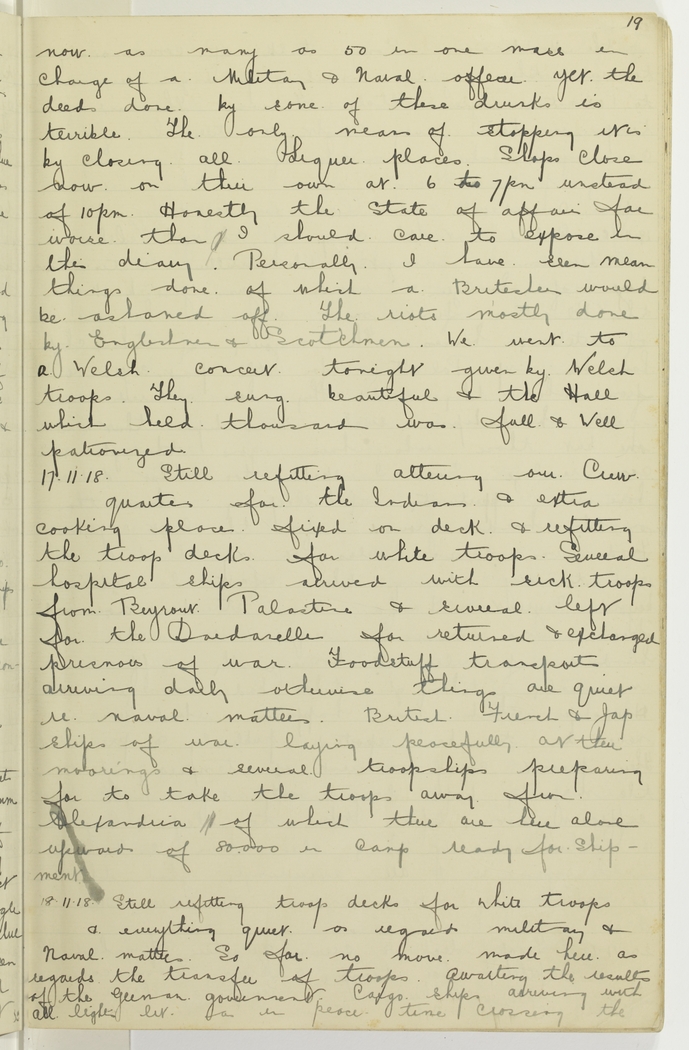 19
now as many as 50 in one mass in
charge of a Military & Naval officer yet the
deeds done by some of these drunks is
terrible. The only means of stopping it is
by closing all liquer places. Shops close
now on their own at 6 to 7pm instead
of 10pm. Honestly the State of affair far
worse than I should care to expose in
this diary. Personally I have seen mean
things done of which a Britisher would
be ashamed off. The riots mostly done
by Englishmen & Scotchmen. We went to
a Welsh concert tonight given by Welsh
troops. They sung beautiful & the Hall
which held thousand was full & Well
patronized.
17.11.18. Still refitting altering our Crew
quarters for the Indians & extra
cooking place fixed on deck & refitting
the troop decks for white troops. Several
hospital ships arrived with sick troops
from Beyrout Palastine & several left
for the Dardanelles for returned & exchanged
prisnors of war. Foodstuff transports
arriving daily otherwise things are quiet
re naval matters. British French & Jap
Ships of war laying peacefully at their
moorings & several troopships preparing
for to take the troops away from
Alexandria of which there are here alone
upwards of 80.000 in Camp ready for Ship-
ment
18.11.18. Still refitting troop decks for white troops
& everything quiet as regards military &
Naval matters. So far no move made here as
regards the transfer of troops. Awaiting the results
of the German government. Cargo ships arriving with
all lights lit as in peace time crossing the